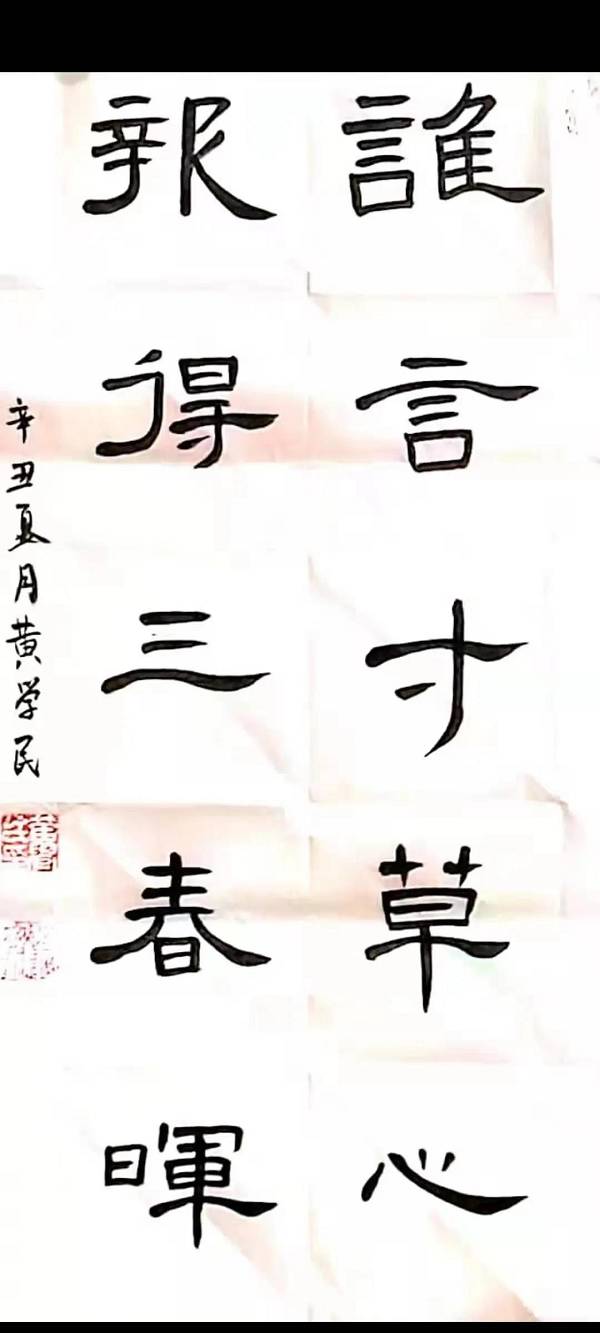 誰言寸草心
報得三春暉
辛丑夏月黄学民